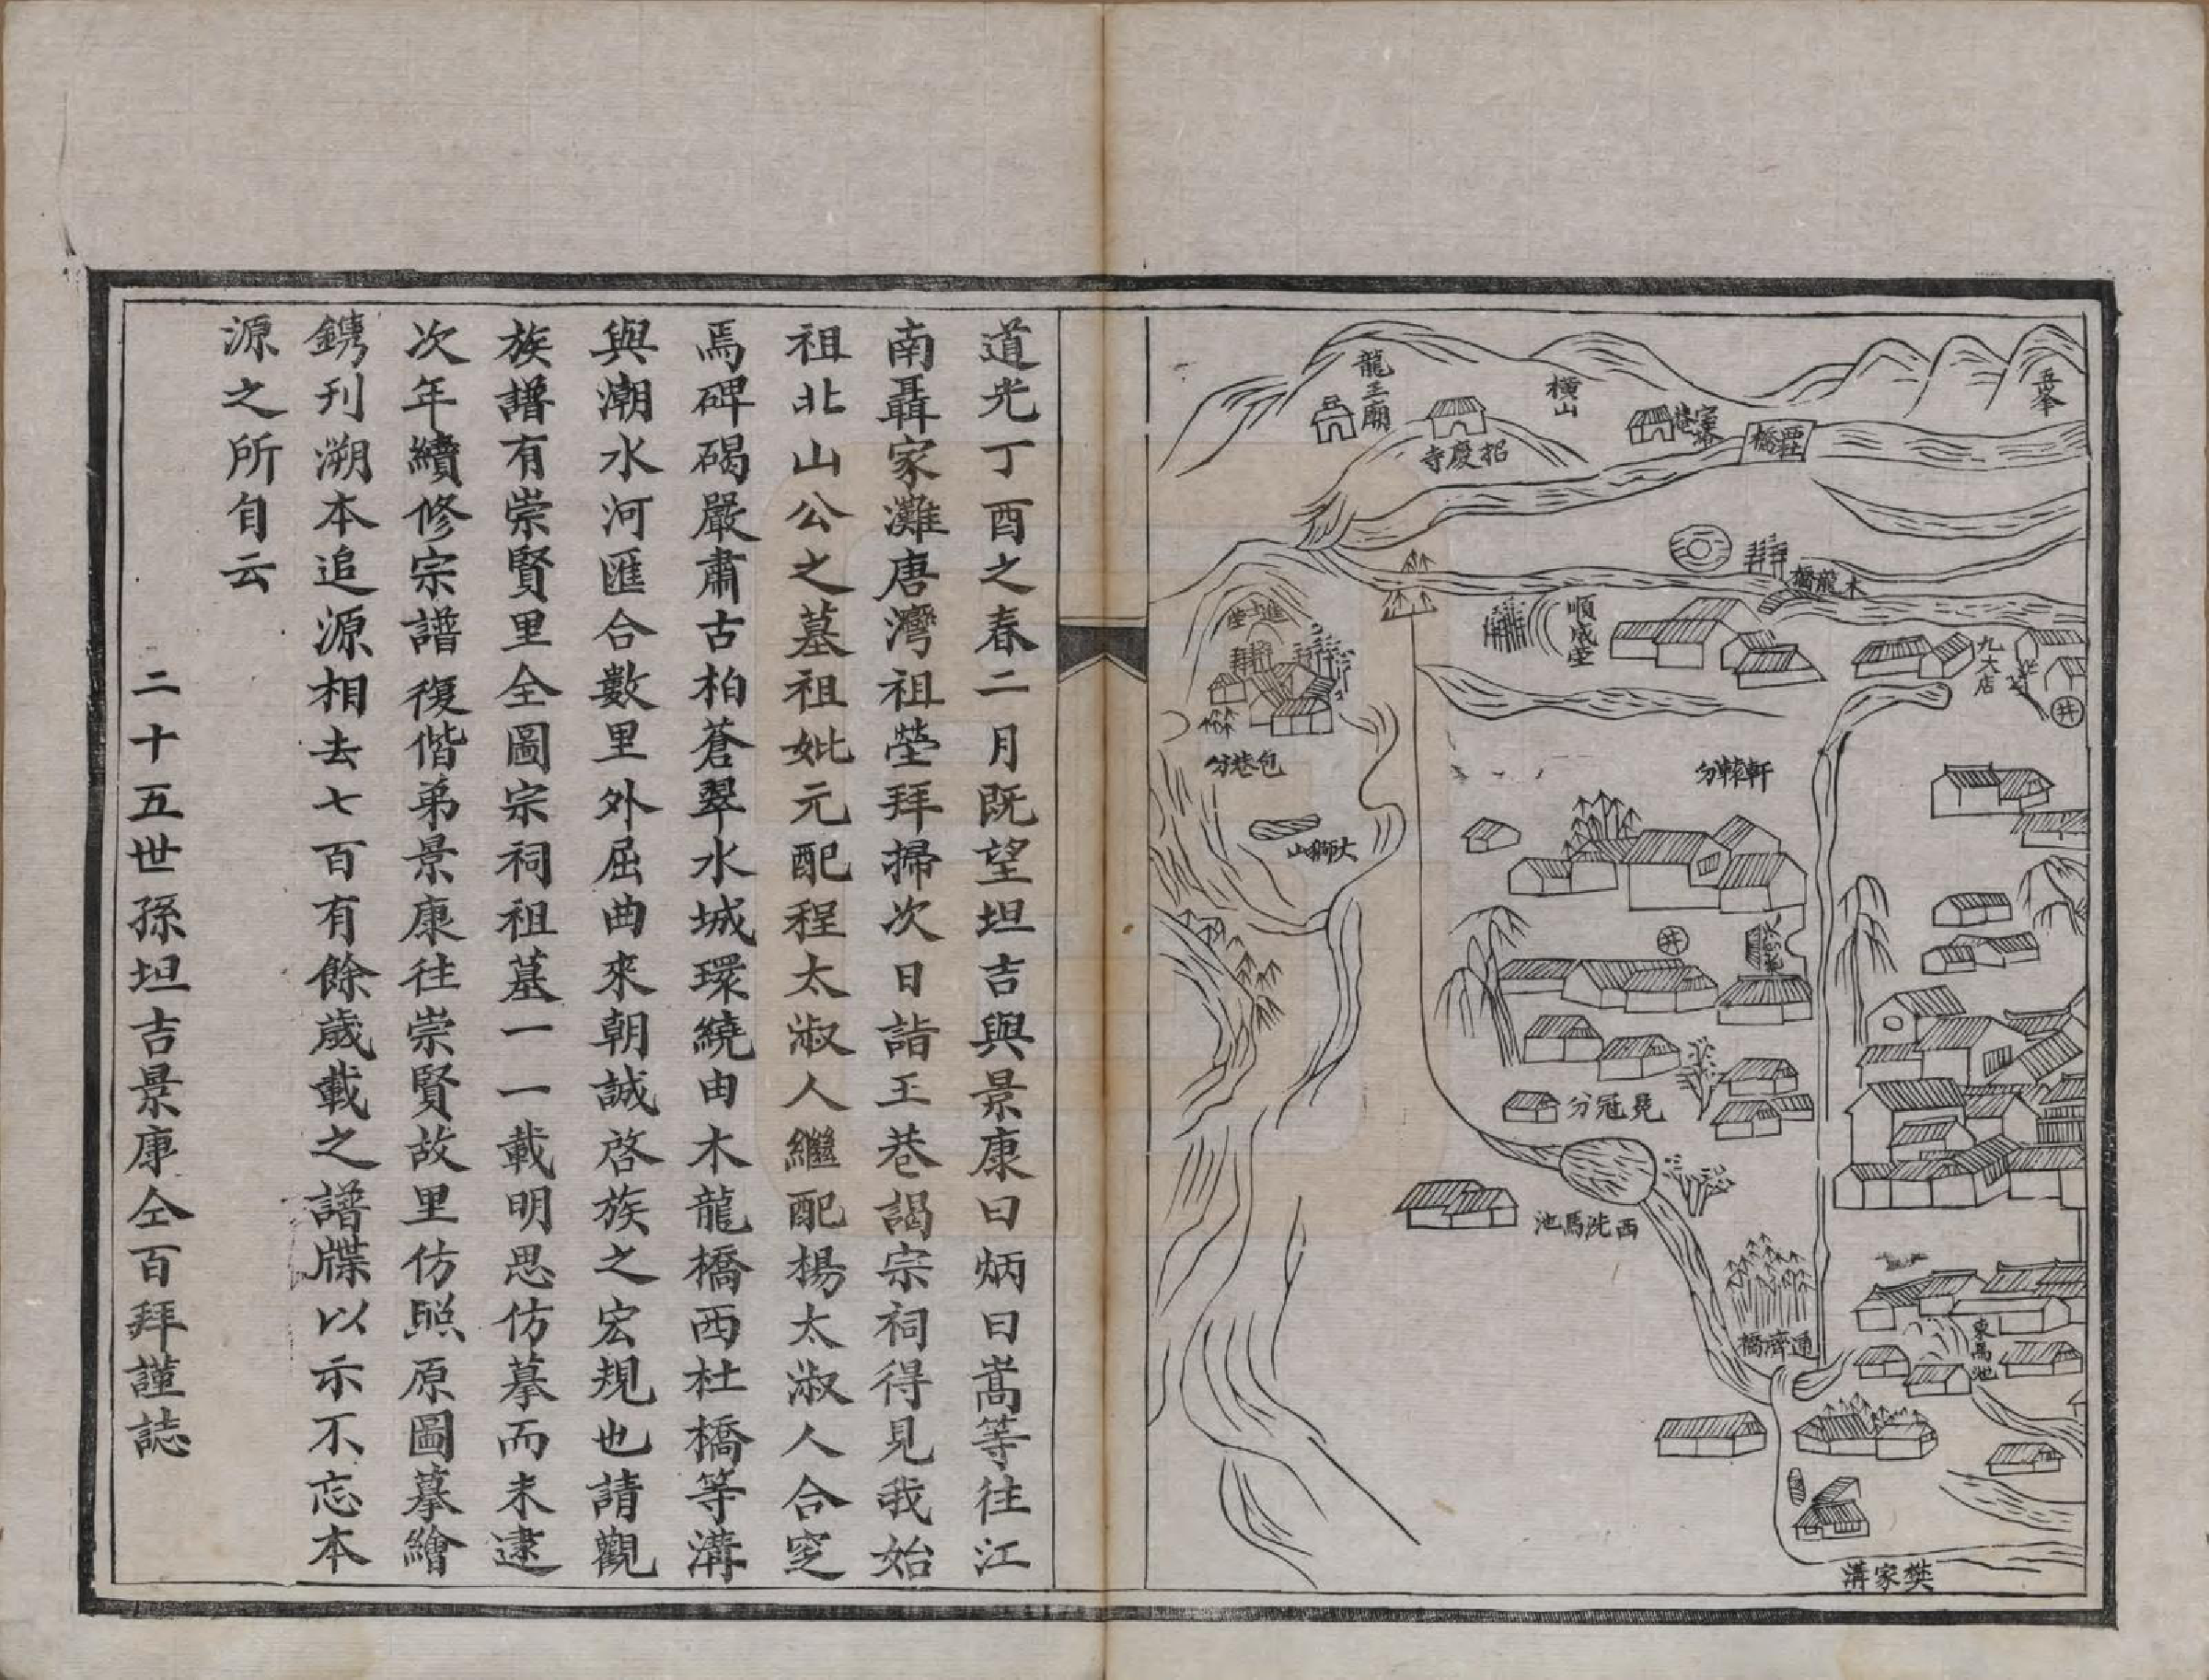 五峯
橫山
龍王廟
招慶寺
西社橋
木龍橋
順成堂
九大店
井
進士塋
包巷分
大獅山
軒轅分
井
冕冠分
西洗馬池
通濟橋
東馬池
樊家溝
道光丁酉之春二月既望坦吉與景康曰炳曰嵩等往江
南聶家灘唐灣祖塋拜掃次日詣王巷謁宗祠得見我始
祖北山公之墓祖妣元配程太淑人繼配楊太淑人合窆
焉碑碣嚴肅古柏蒼翠水城環繞由木龍橋西杜橋等溝
與潮水河匯合數里外屈曲來朝誠啓族之宏規也請觀
族譜有崇賢里全圖宗祠祖墓一一載明思仿摹而未逮
次年續修宗譜復偕弟景康往崇賢故里仿照原圖摹繪
鐫刊溯本追源相去七百有餘歲載之譜牒以示不忘本
源之所自云
二十五世孫坦吉景康仝百拜謹誌